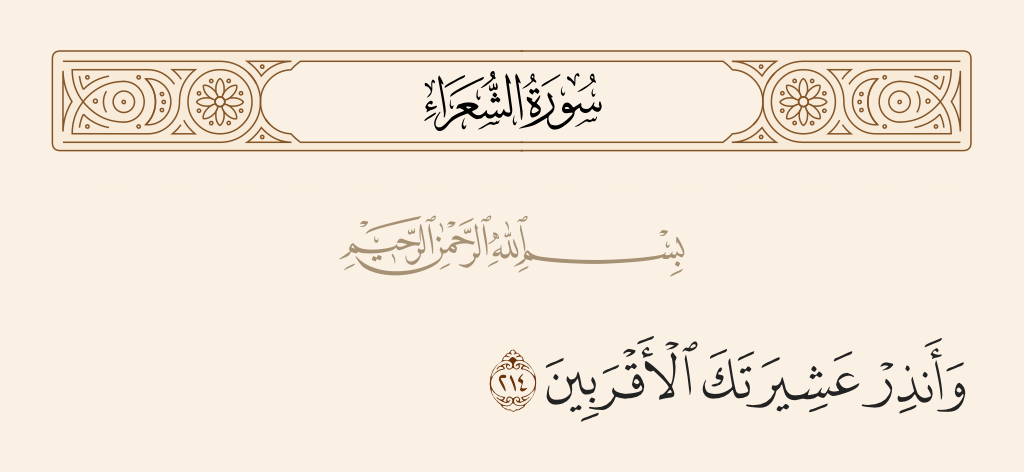 سُورَةُ الشُّعَرَاءِ
بِسْمِ ٱللَّهِ ٱلرَّحْمَٰنِ ٱلرَّحِيمِ
وَأَنذِرْ عَشِيرَتَكَ ٱلْأَقْرَبِينَ ٢١٤